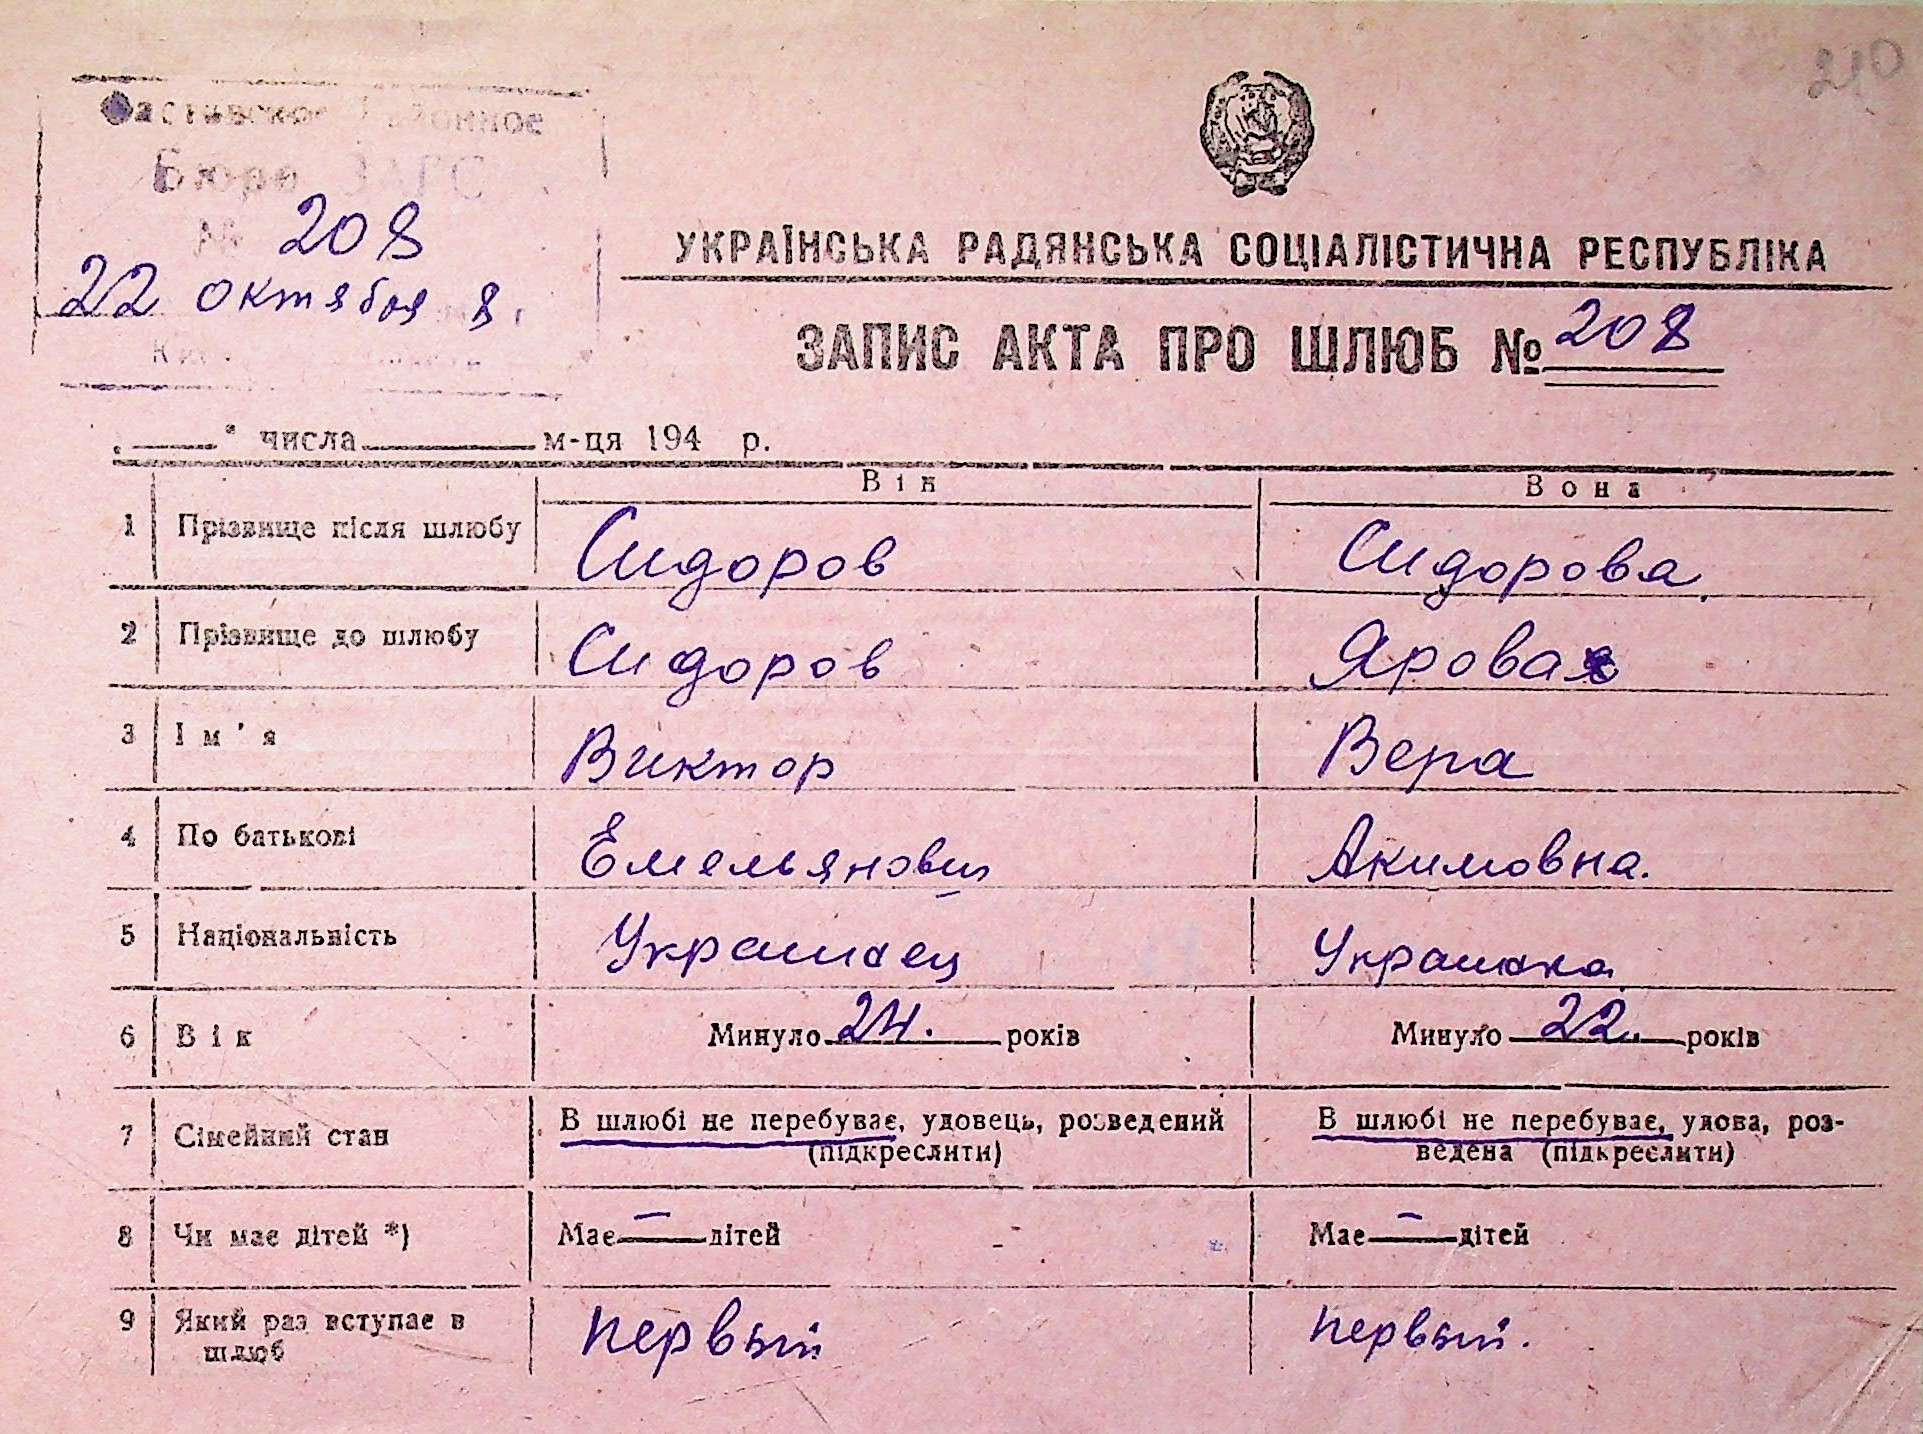 210
Фастивское Районное
Бюро ЗАГС
№ 208
22 октября 8 г
УКРАЇНСЬКА РАДЯНСЬКА СОЦІАЛІСТИЧНА РЕСПУБЛІКА
ЗАПИС АКТА ПРО ШЛЮБ № 208
„ " числа м-ця 194 р.
Він Вона
1 Прізвище після шлюбу Сидоров Сидорова.
2 Прізвище до шлюбу Сидоров Яровая
3 Ім'я Виктор Вера
4 По батькові Емельянович Акимовна.
5 Національність Украинец Украинка
6 Вік Минуло 24. років Минуло 22. років
7 Сімейний стан В шлюбі не перебуває, удовець, розведений В шлюбі не перебуває, удова, роз-
(підкреслити) ведена (підкреслити)
8 Чи має дітей *) Має — дітей Має — дітей
9 Який раз вступає в первый первый.
шлюб